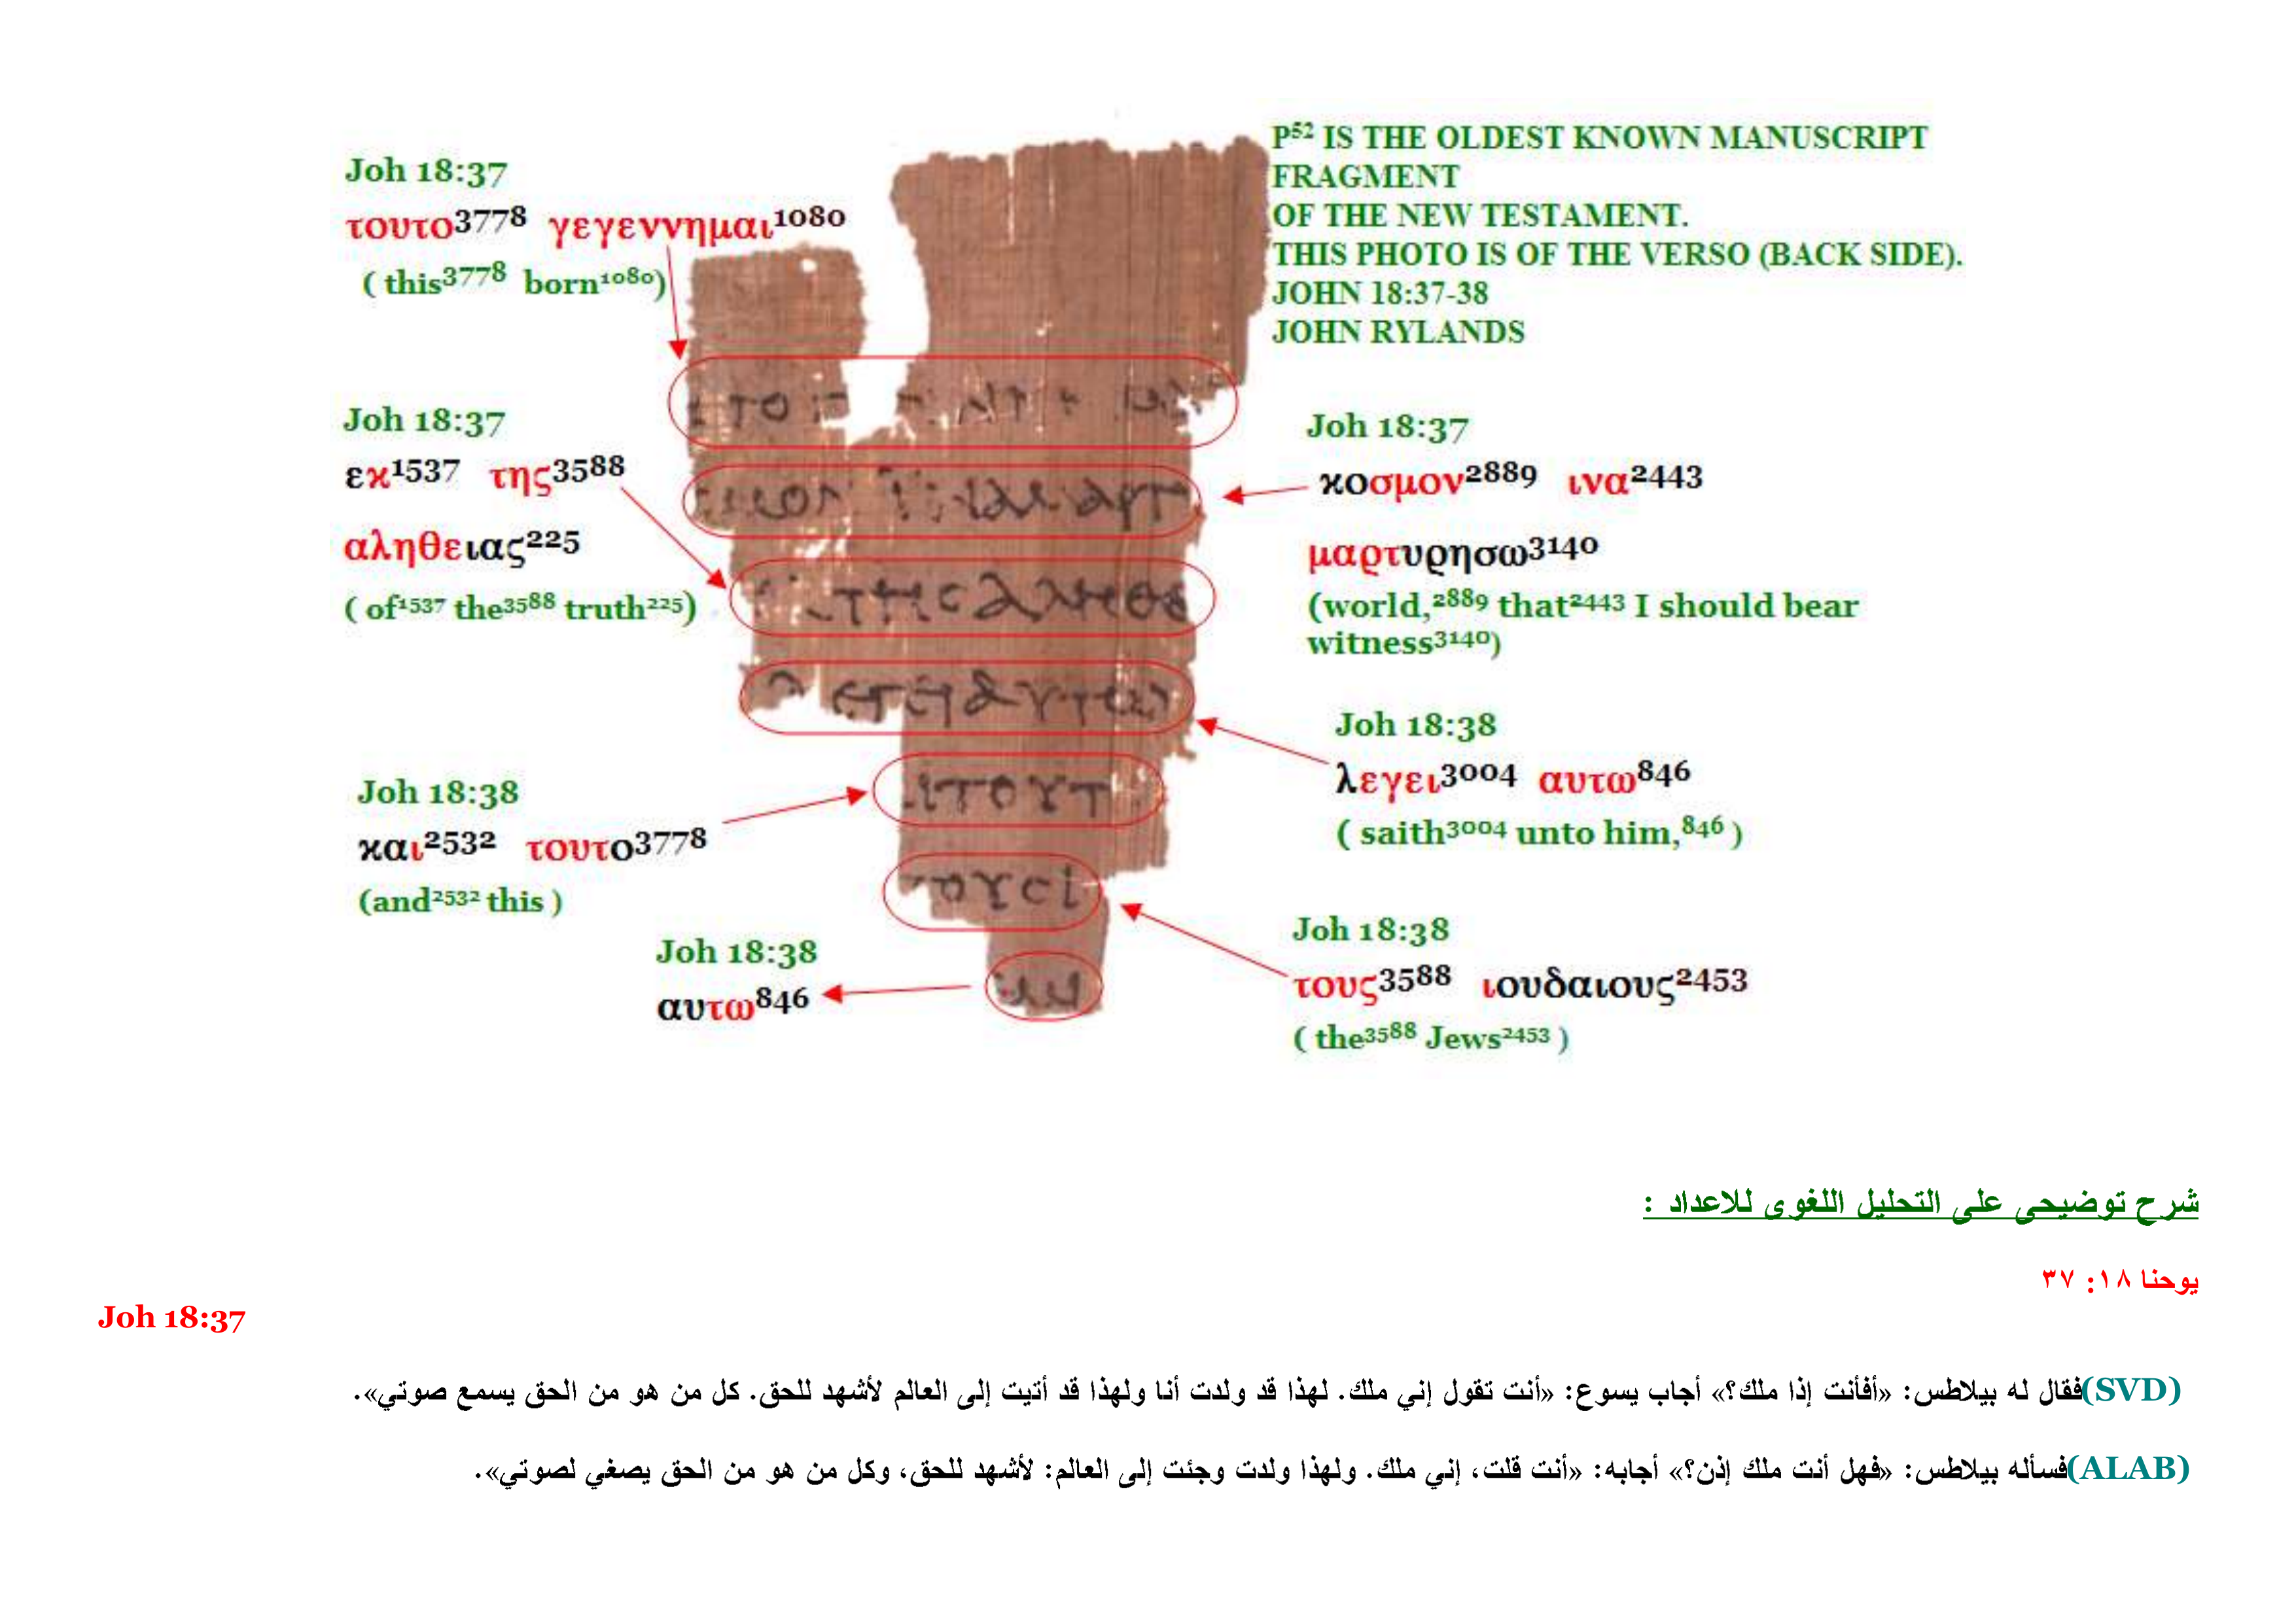 P⁵² IS THE OLDEST KNOWN MANUSCRIPT
FRAGMENT
OF THE NEW TESTAMENT.
THIS PHOTO IS OF THE VERSO (BACK SIDE).
JOHN 18:37-38
JOHN RYLANDS
Joh 18:37
τουτο³⁷⁷⁸ γεγεννημαι¹⁰⁸⁰
( this³⁷⁷⁸ born¹⁰⁸⁰)
Joh 18:37
εκ¹⁵³⁷ της³⁵⁸⁸
αληθειας²²⁵
( of¹⁵³⁷ the³⁵⁸⁸ truth²²⁵)
Joh 18:37
κοσμον²⁸⁸⁹ ινα²⁴⁴³
μαρτυρησω³¹⁴⁰
(world,²⁸⁸⁹ that²⁴⁴³ I should bear
witness³¹⁴⁰)
Joh 18:38
λεγει³⁰⁰⁴ αυτω⁸⁴⁶
( saith³⁰⁰⁴ unto him,⁸⁴⁶ )
Joh 18:38
και²⁵³² τουτο³⁷⁷⁸
(and²⁵³² this )
Joh 18:38
τους³⁵⁸⁸ ιουδαιους²⁴⁵³
( the³⁵⁸⁸ Jews²⁴⁵³ )
Joh 18:38
αυτω⁸⁴⁶
شرح توضيحى على التحليل اللغوى للاعداد :
يوحنا ١٨: ٣٧
Joh 18:37
(SVD)فقال له بيلاطس: «أفأنت إذا ملك؟» أجاب يسوع: «أنت تقول إني ملك. لهذا قد ولدت أنا ولهذا قد أتيت إلى العالم لأشهد للحق. كل من هو من الحق يسمع صوتي».
(ALAB)فسأله بيلاطس: «فهل أنت ملك إذن؟» أجابه: «أنت قلت، إني ملك. ولهذا ولدت وجئت إلى العالم: لأشهد للحق، وكل من هو من الحق يصغي لصوتي».